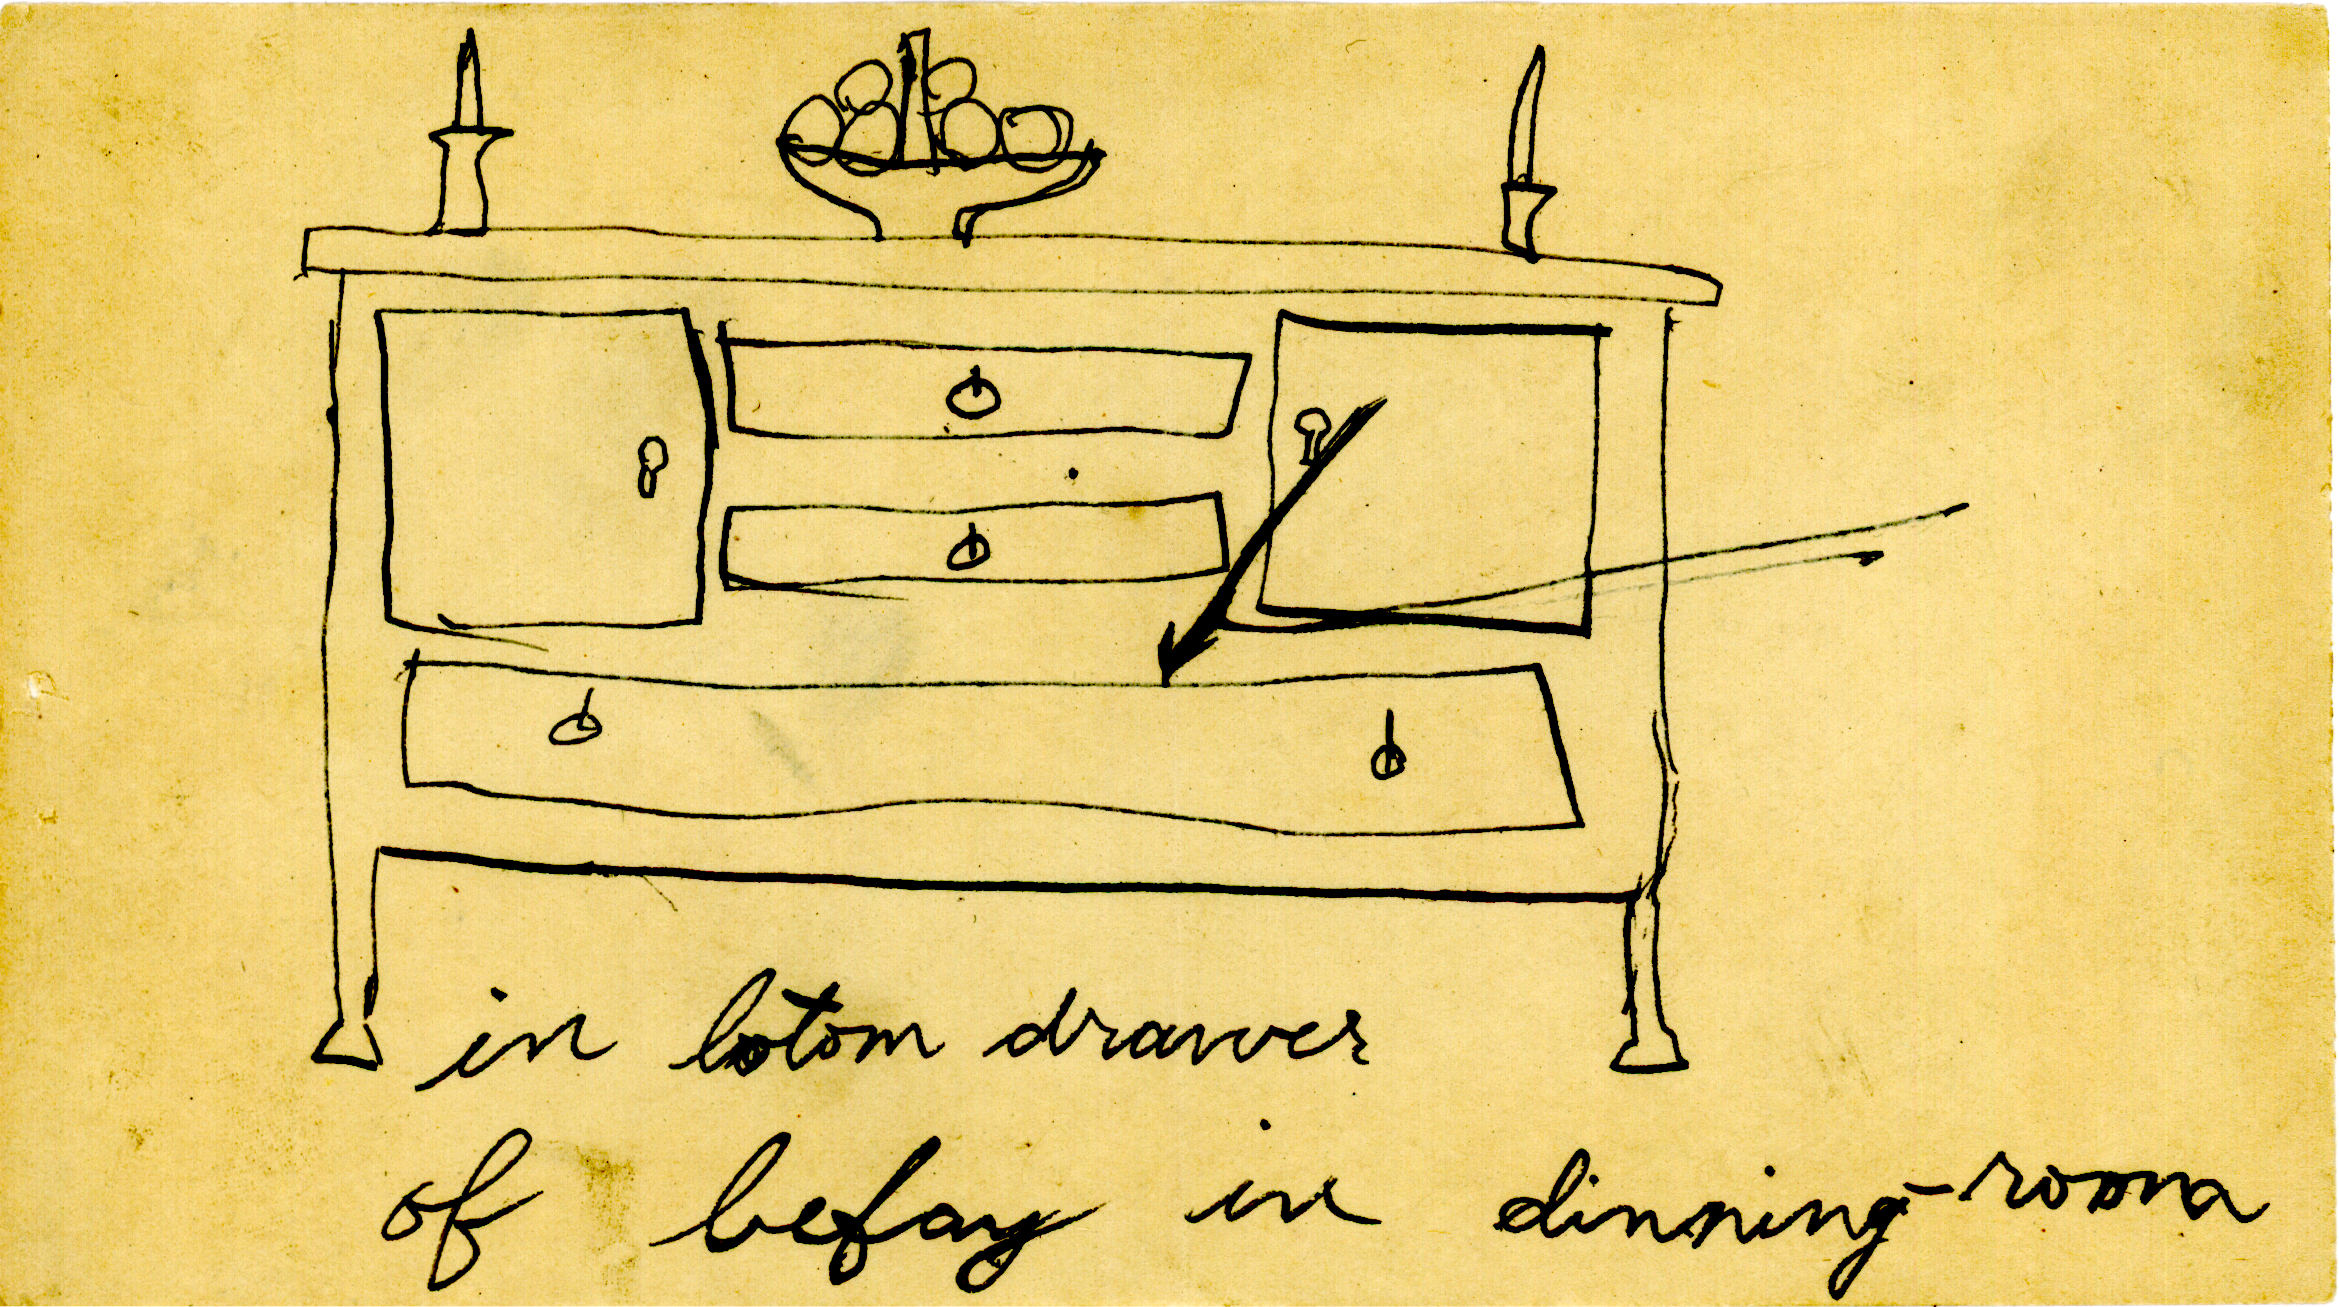 in botom drawer
of befay in dinning-room